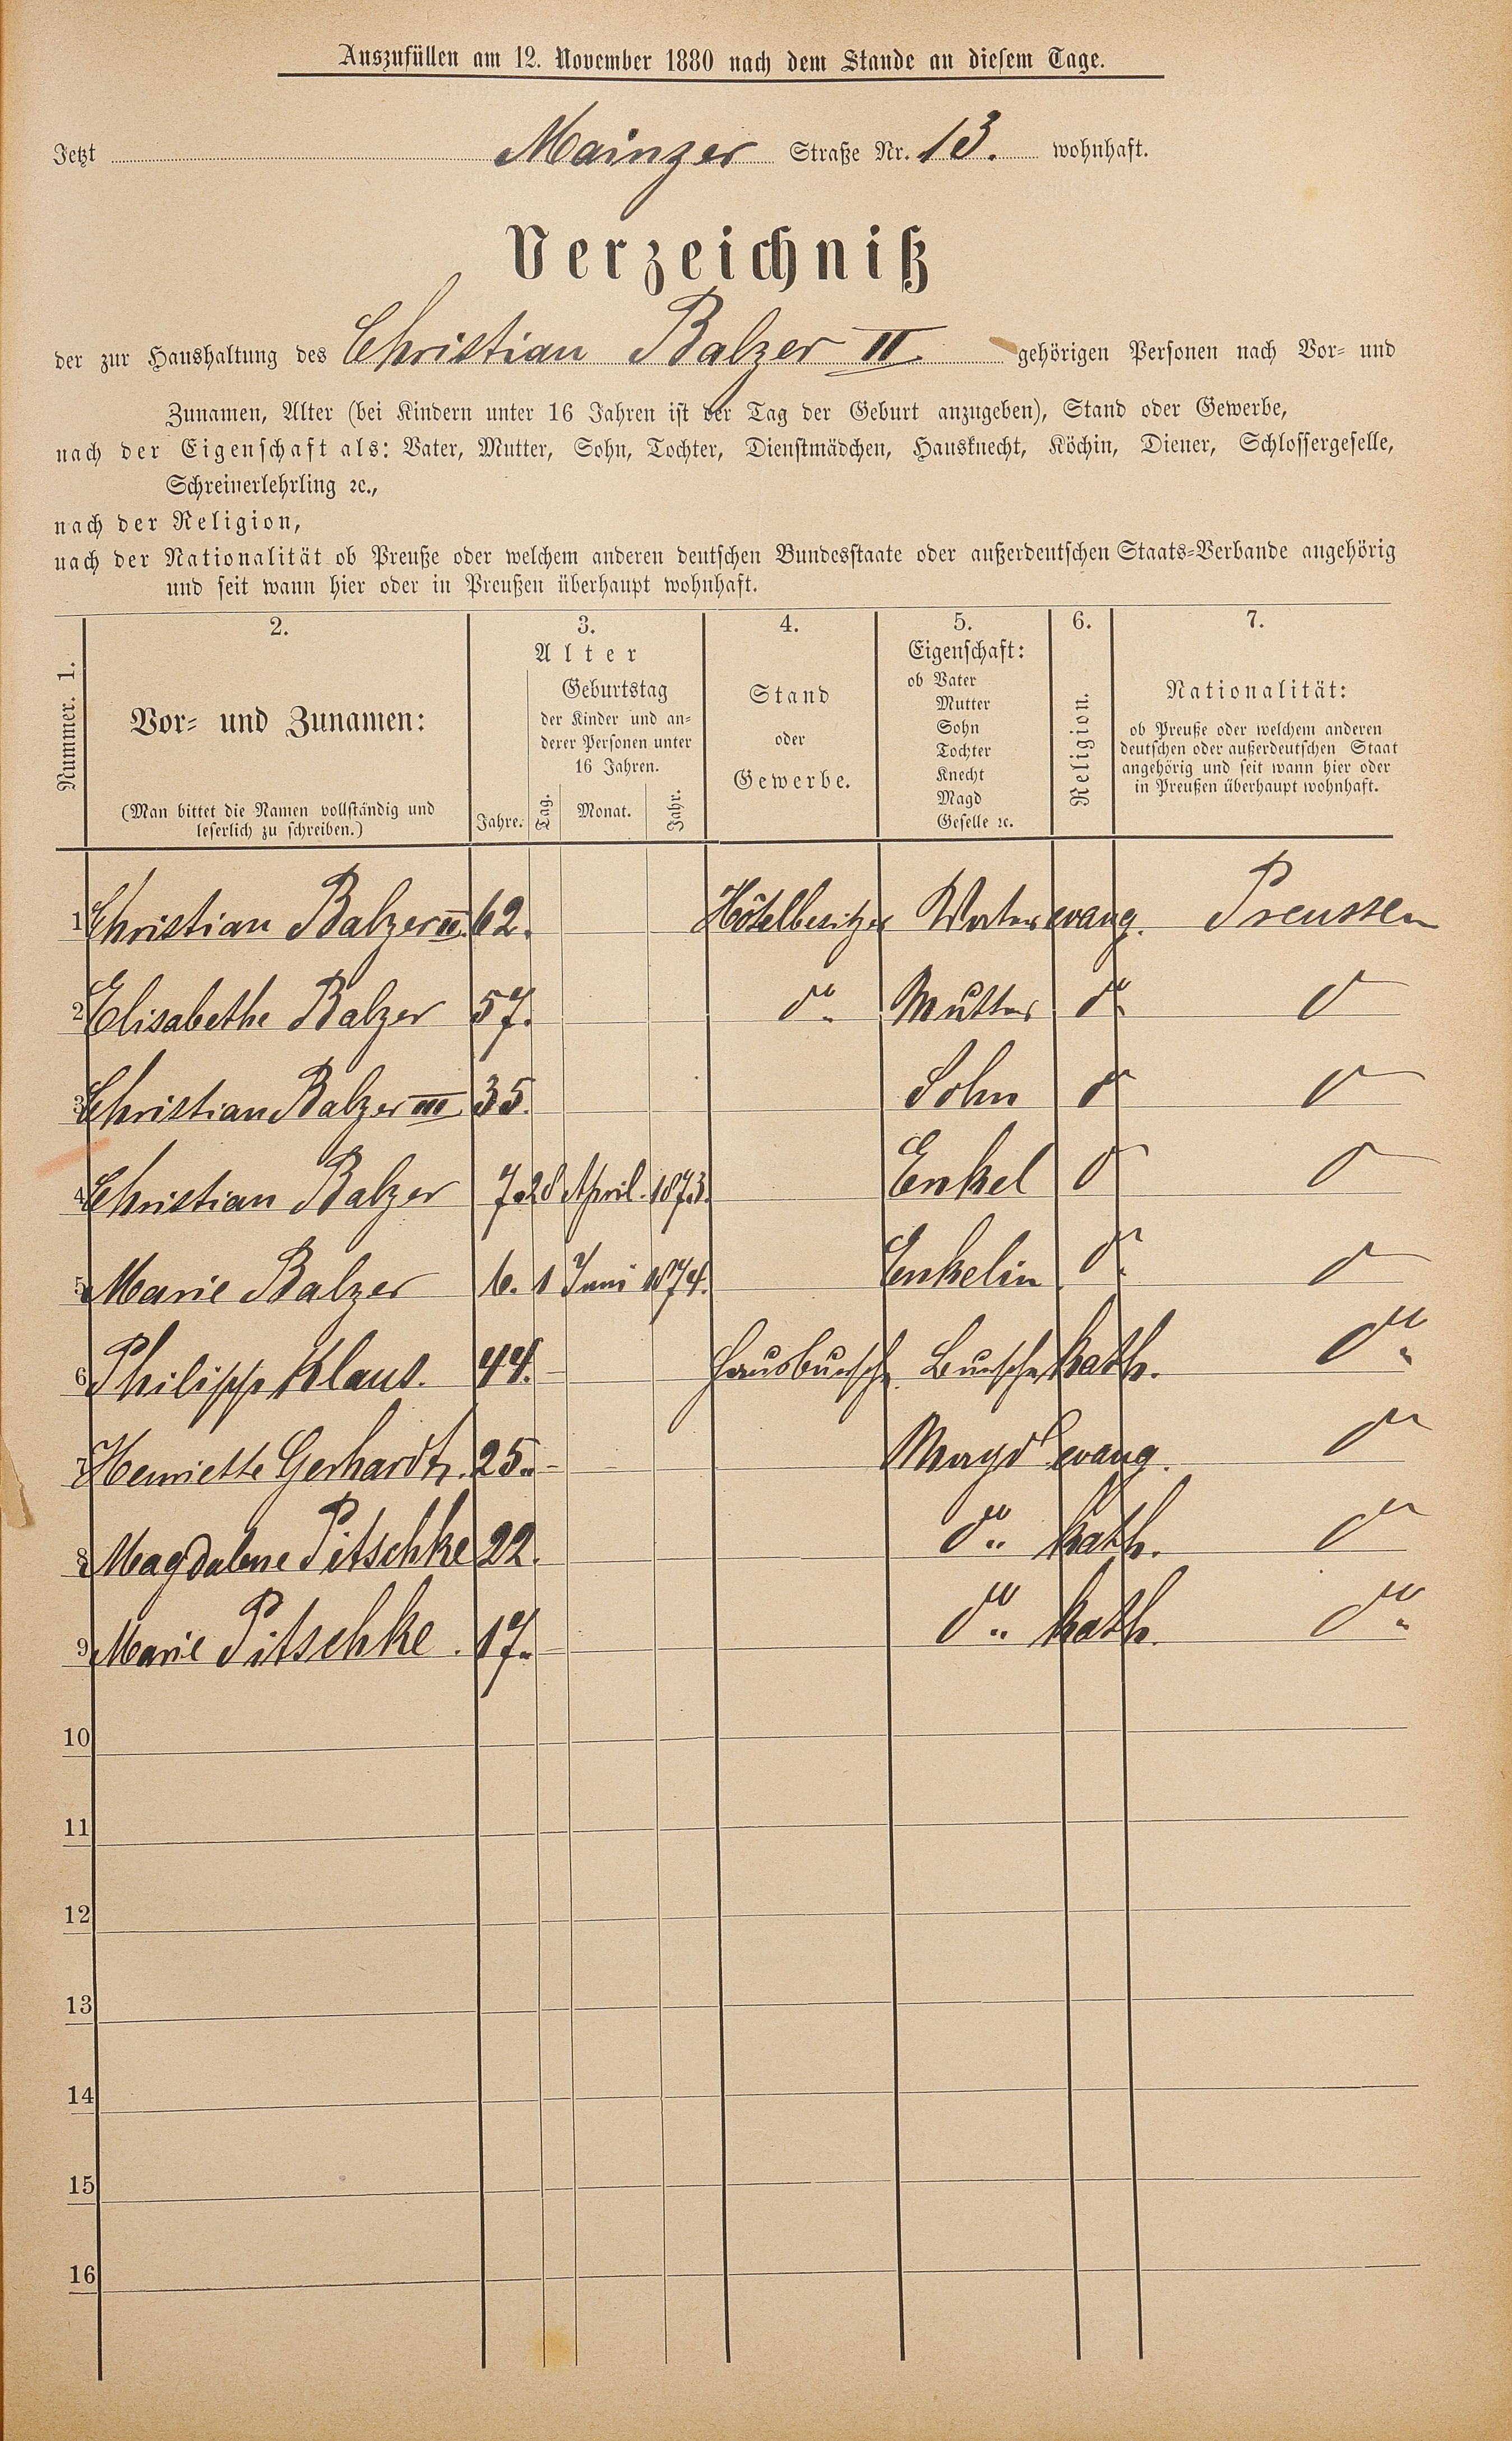 Auszufüllen am 12. November 1880 nach dem Stande an diesem Tage.
Jetzt Mainzer Straße Nr. 13. wohnhaft.
Verzeichniß
der zur Haushaltung des Christian Balzer II. gehörigen Personen nach Vor- und
Zunamen, Alter (bei Kindern unter 16 Jahren ist der Tag der Geburt anzugeben), Stand oder Gewerbe,
nach der Eigenschaft als: Vater, Mutter, Sohn, Tochter, Dienstmädchen, Hausknecht, Köchin, Diener, Schlossergeselle,
Schreinerlehrling ꝛc.,
nach der Religion,
nach der Nationalität ob Preuße oder welchem anderen deutschen Bundesstaate oder außerdeutschen Staats-Verbande angehörig
und seit wann hier oder in Preußen überhaupt wohnhaft.
Nummer. 1.
2.
Vor- und Zunamen:
(Man bittet die Namen vollständig und
leserlich zu schreiben.)
3.
Alter
Jahre.
Geburtstag
der Kinder und an-
derer Personen unter
16 Jahren.
Tag. Monat. Jahr.
4.
Stand
oder
Gewerbe.
5.
Eigenschaft:
ob Vater
Mutter
Sohn
Tochter
Knecht
Magd
Geselle ꝛc.
6.
Religion.
7.
Nationalität:
ob Preuße oder welchem anderen
deutschen oder außerdeutschen Staat
angehörig und seit wann hier oder
in Preußen überhaupt wohnhaft.
1 Christian Balzer II. 62. Hôtelbesitzer Vater evang. Preussen
2 Elisabethe Balzer 57. do Mutter do do
3 Christian Balzer III 35. Sohn do do
4 Christian Balzer 7. 28 April. 1873. Enkel do do
5 Marie Balzer 6. 1 Juni 1874. Enkelin do do
6 Philipp Klaus. 44. Hausbursche Bursche kath. do
7 Henriette Gerhardt. 25. Magd evang. do
8 Magdalene Pitschke 22. do kath. do
9 Marie Pitschke. 17. do kath. do
10
11
12
13
14
15
16